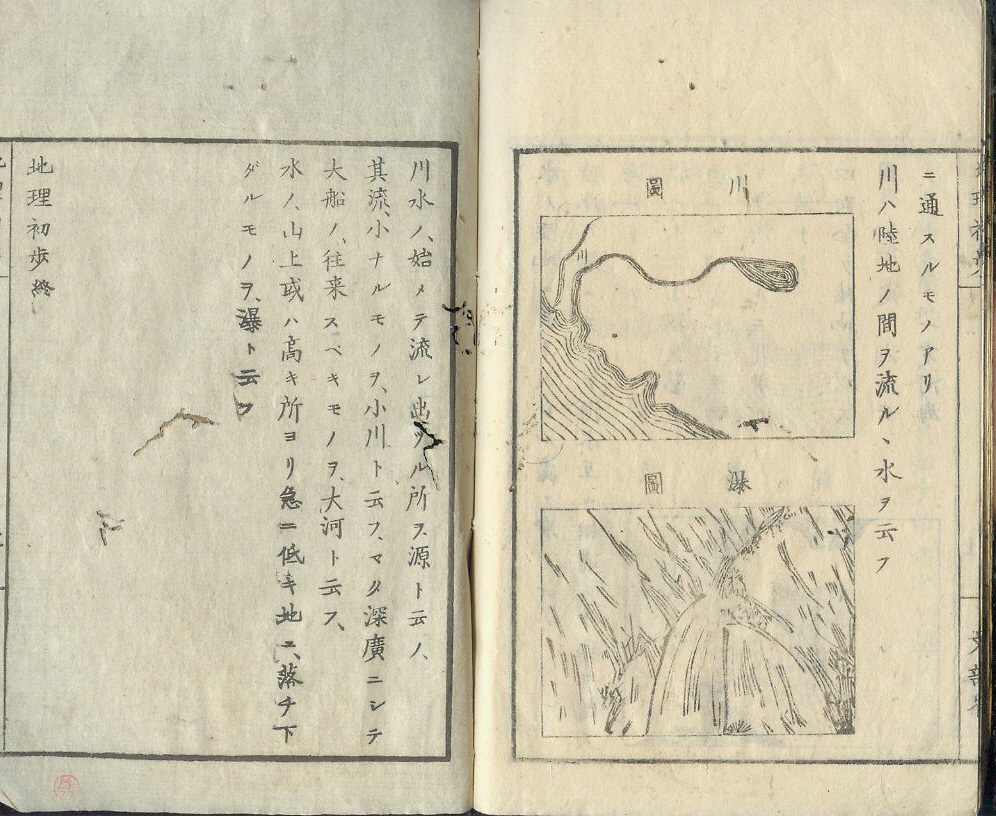 ニ通スルモノアリ
川ハ陸地ノ間ヲ流ル、水ヲ云フ
川圖
川
瀑圖
川水ノ、始メテ流レ出ヅル所ヲ源ト云ノ、
其流、小ナルモノヲ、小川ト云フ、マタ深廣ニシテ
大船ノ、往来スベキモノヲ、大河ト云フ、
水ノ、山上或ハ高キ所ヨリ急ニ低キ地ニ、落チ下
ダルモノヲ、瀑ト云フ
地理初歩終